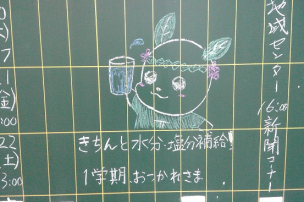 地域センター 16:00 新聞コーナー
きちんと水分・塩分補給!
1学期 おーかれさま
(金)
22
(土)
3:00